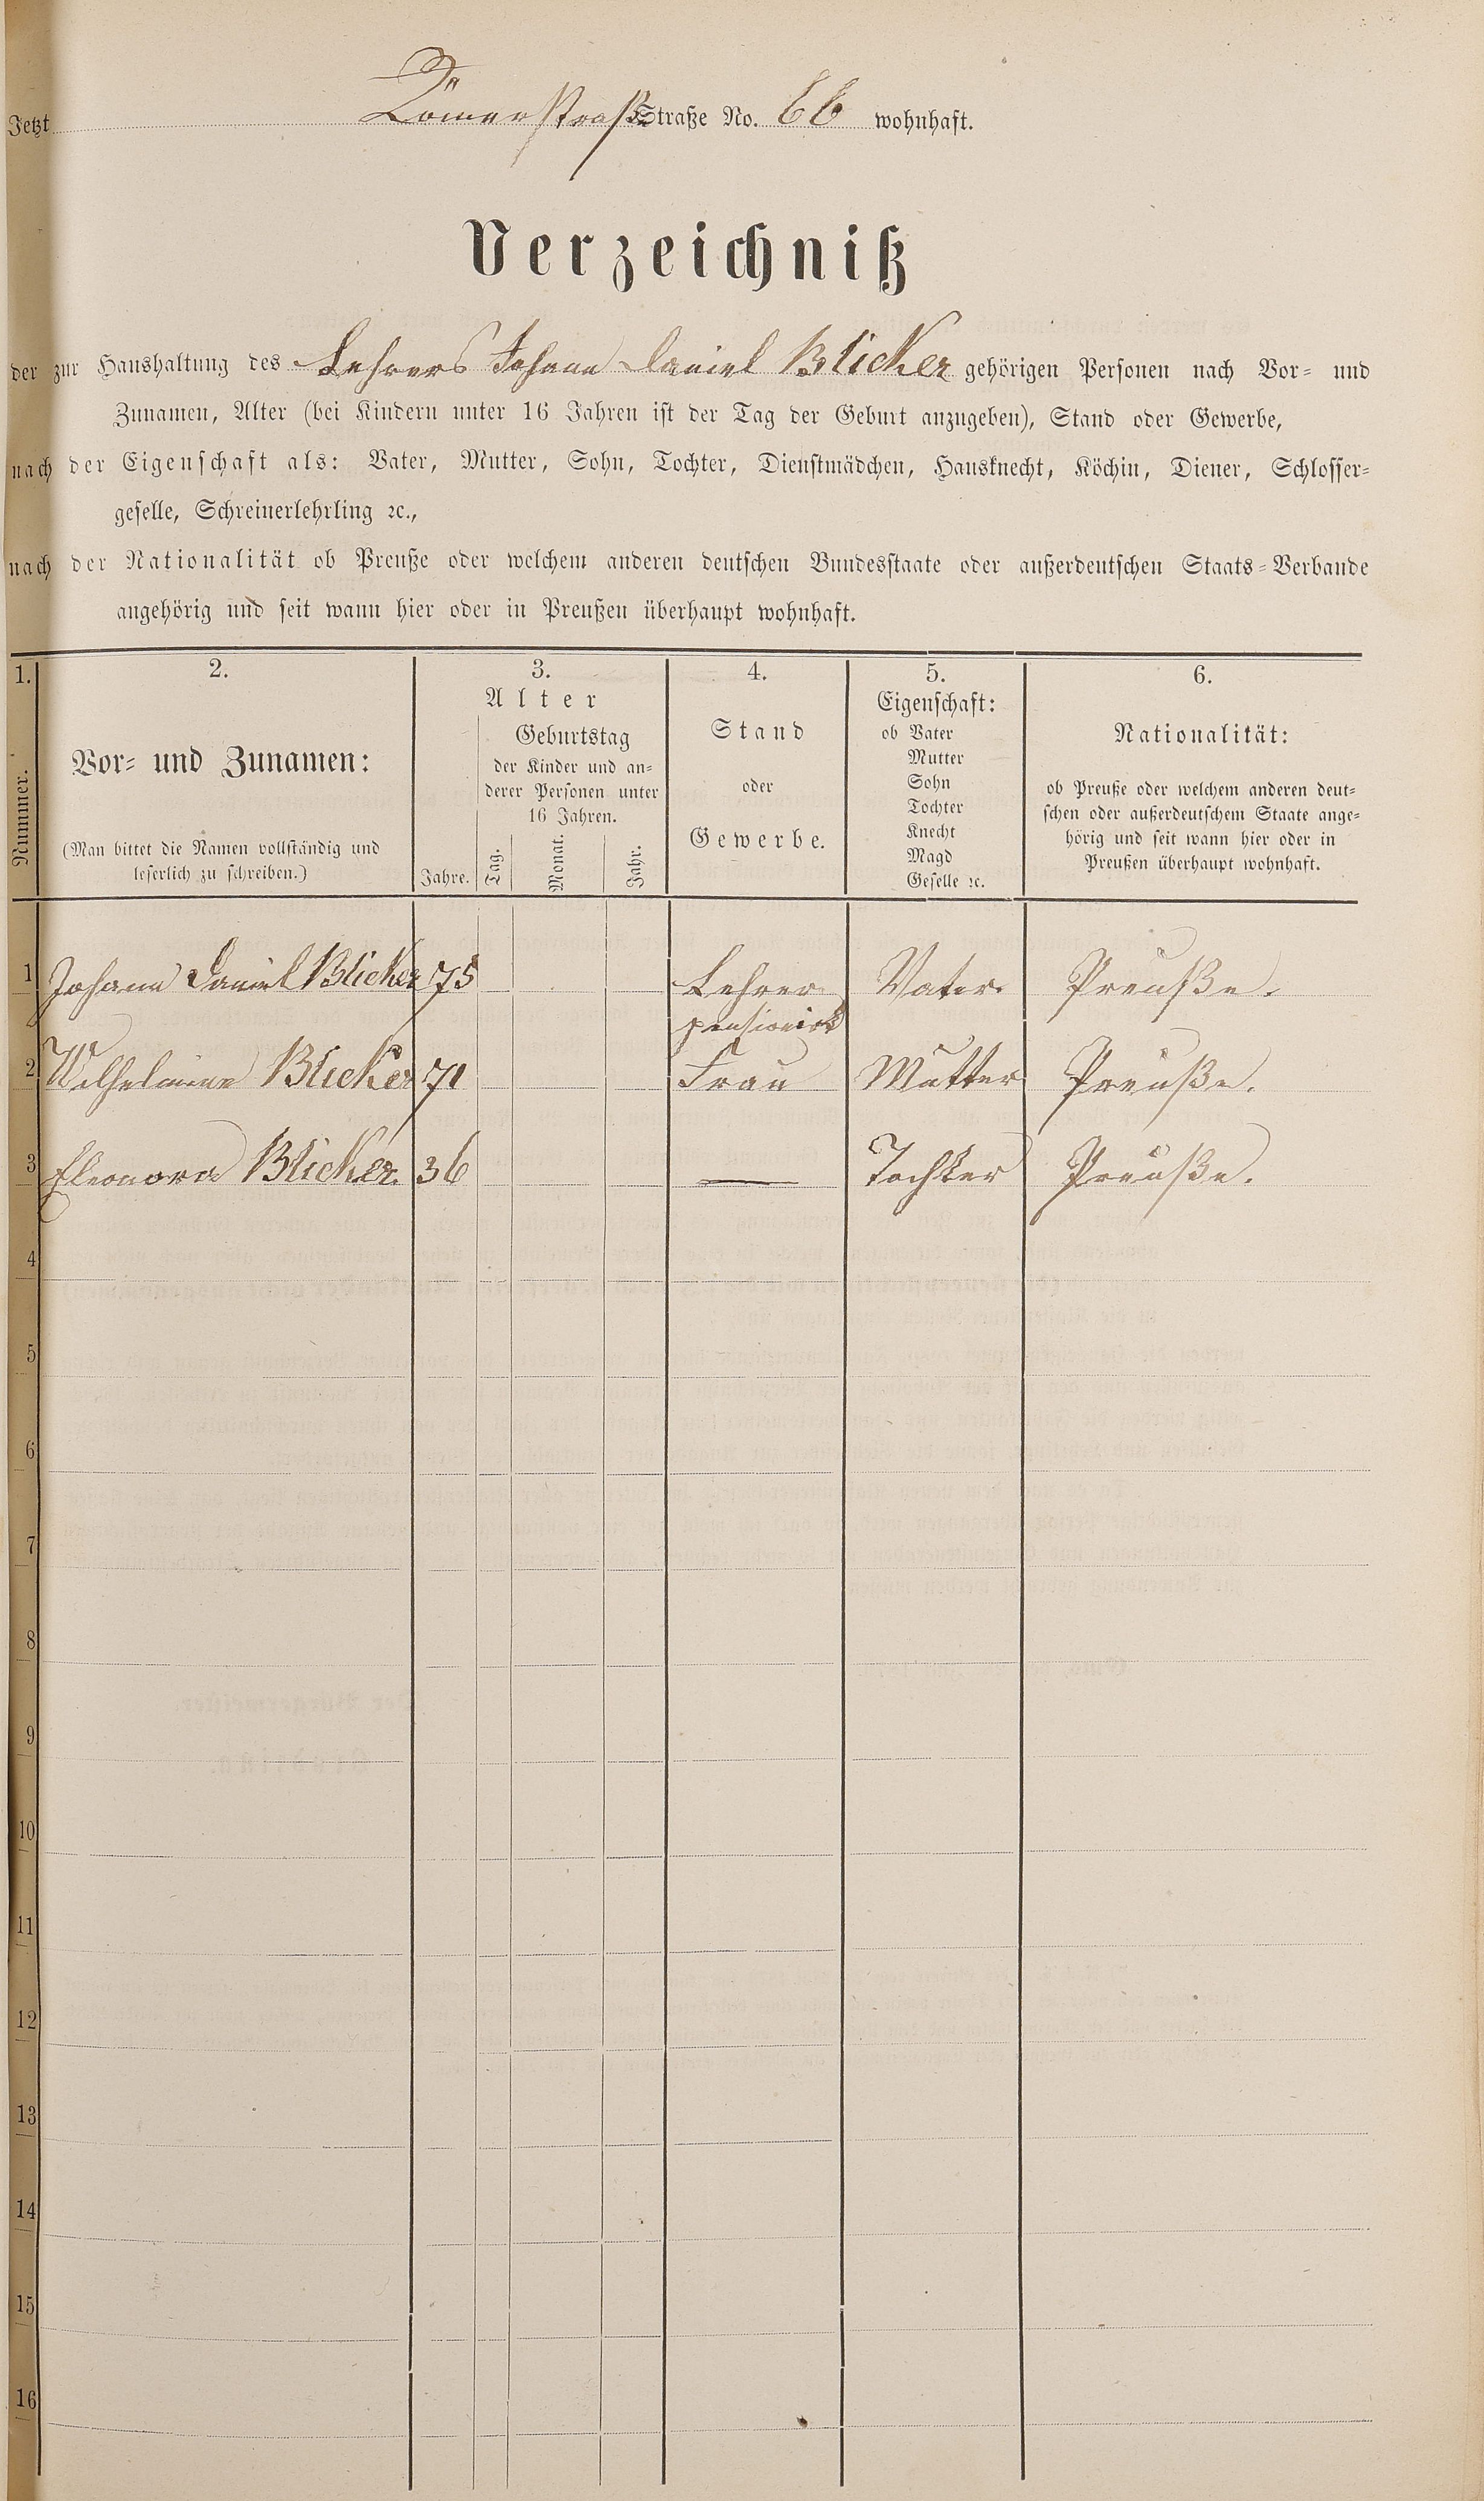 Jetzt Römerstraße Straße No. 66 wohnhaft.
Verzeichniß
der zur Haushaltung des Lehrers Johann Daniel Blicker gehörigen Personen nach Vor- und
Zunamen, Alter (bei Kindern unter 16 Jahren ist der Tag der Geburt anzugeben), Stand oder Gewerbe,
nach der Eigenschaft als: Vater, Mutter, Sohn, Tochter, Dienstmädchen, Hausknecht, Köchin, Diener, Schlosser-
geselle, Schreinerlehrling ꝛc.,
nach der Nationalität ob Preuße oder welchem anderen deutschen Bundesstaate oder außerdeutschen Staats-Verbande
angehörig und seit wann hier oder in Preußen überhaupt wohnhaft.
1.
Nummer.
2.
Vor- und Zunamen:
(Man bittet die Namen vollständig und
leserlich zu schreiben.)
3.
Alter
Jahre.
Geburtstag
der Kinder und an-
derer Personen unter
16 Jahren.
Tag.
Monat.
Jahr.
4.
Stand
oder
Gewerbe.
5.
Eigenschaft:
ob Vater
Mutter
Sohn
Tochter
Knecht
Magd
Geselle ꝛc.
6.
Nationalität:
ob Preuße oder welchem anderen deut-
schen oder außerdeutschem Staate ange-
hörig und seit wann hier oder in
Preußen überhaupt wohnhaft.
1 Johann Daniel Blicker 75 Lehrer Vater Preuße.
pensionirt
2 Wilhelmine Blicker 71 Frau Mutter Preuße.
3 Eleonora Blicker. 36 — Tochter Preuße.
4
5
6
7
8
9
10
11
12
13
14
15
16